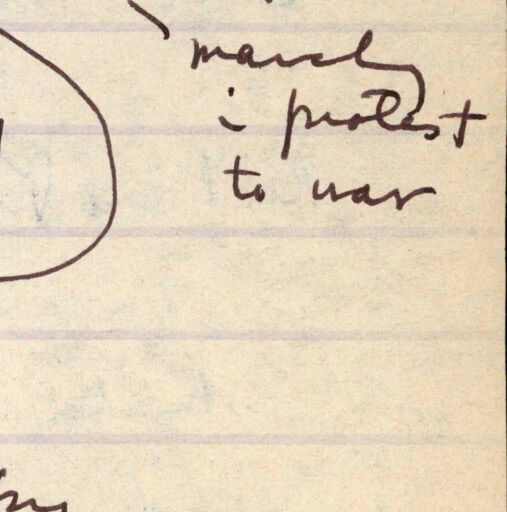 march
i protest
to war